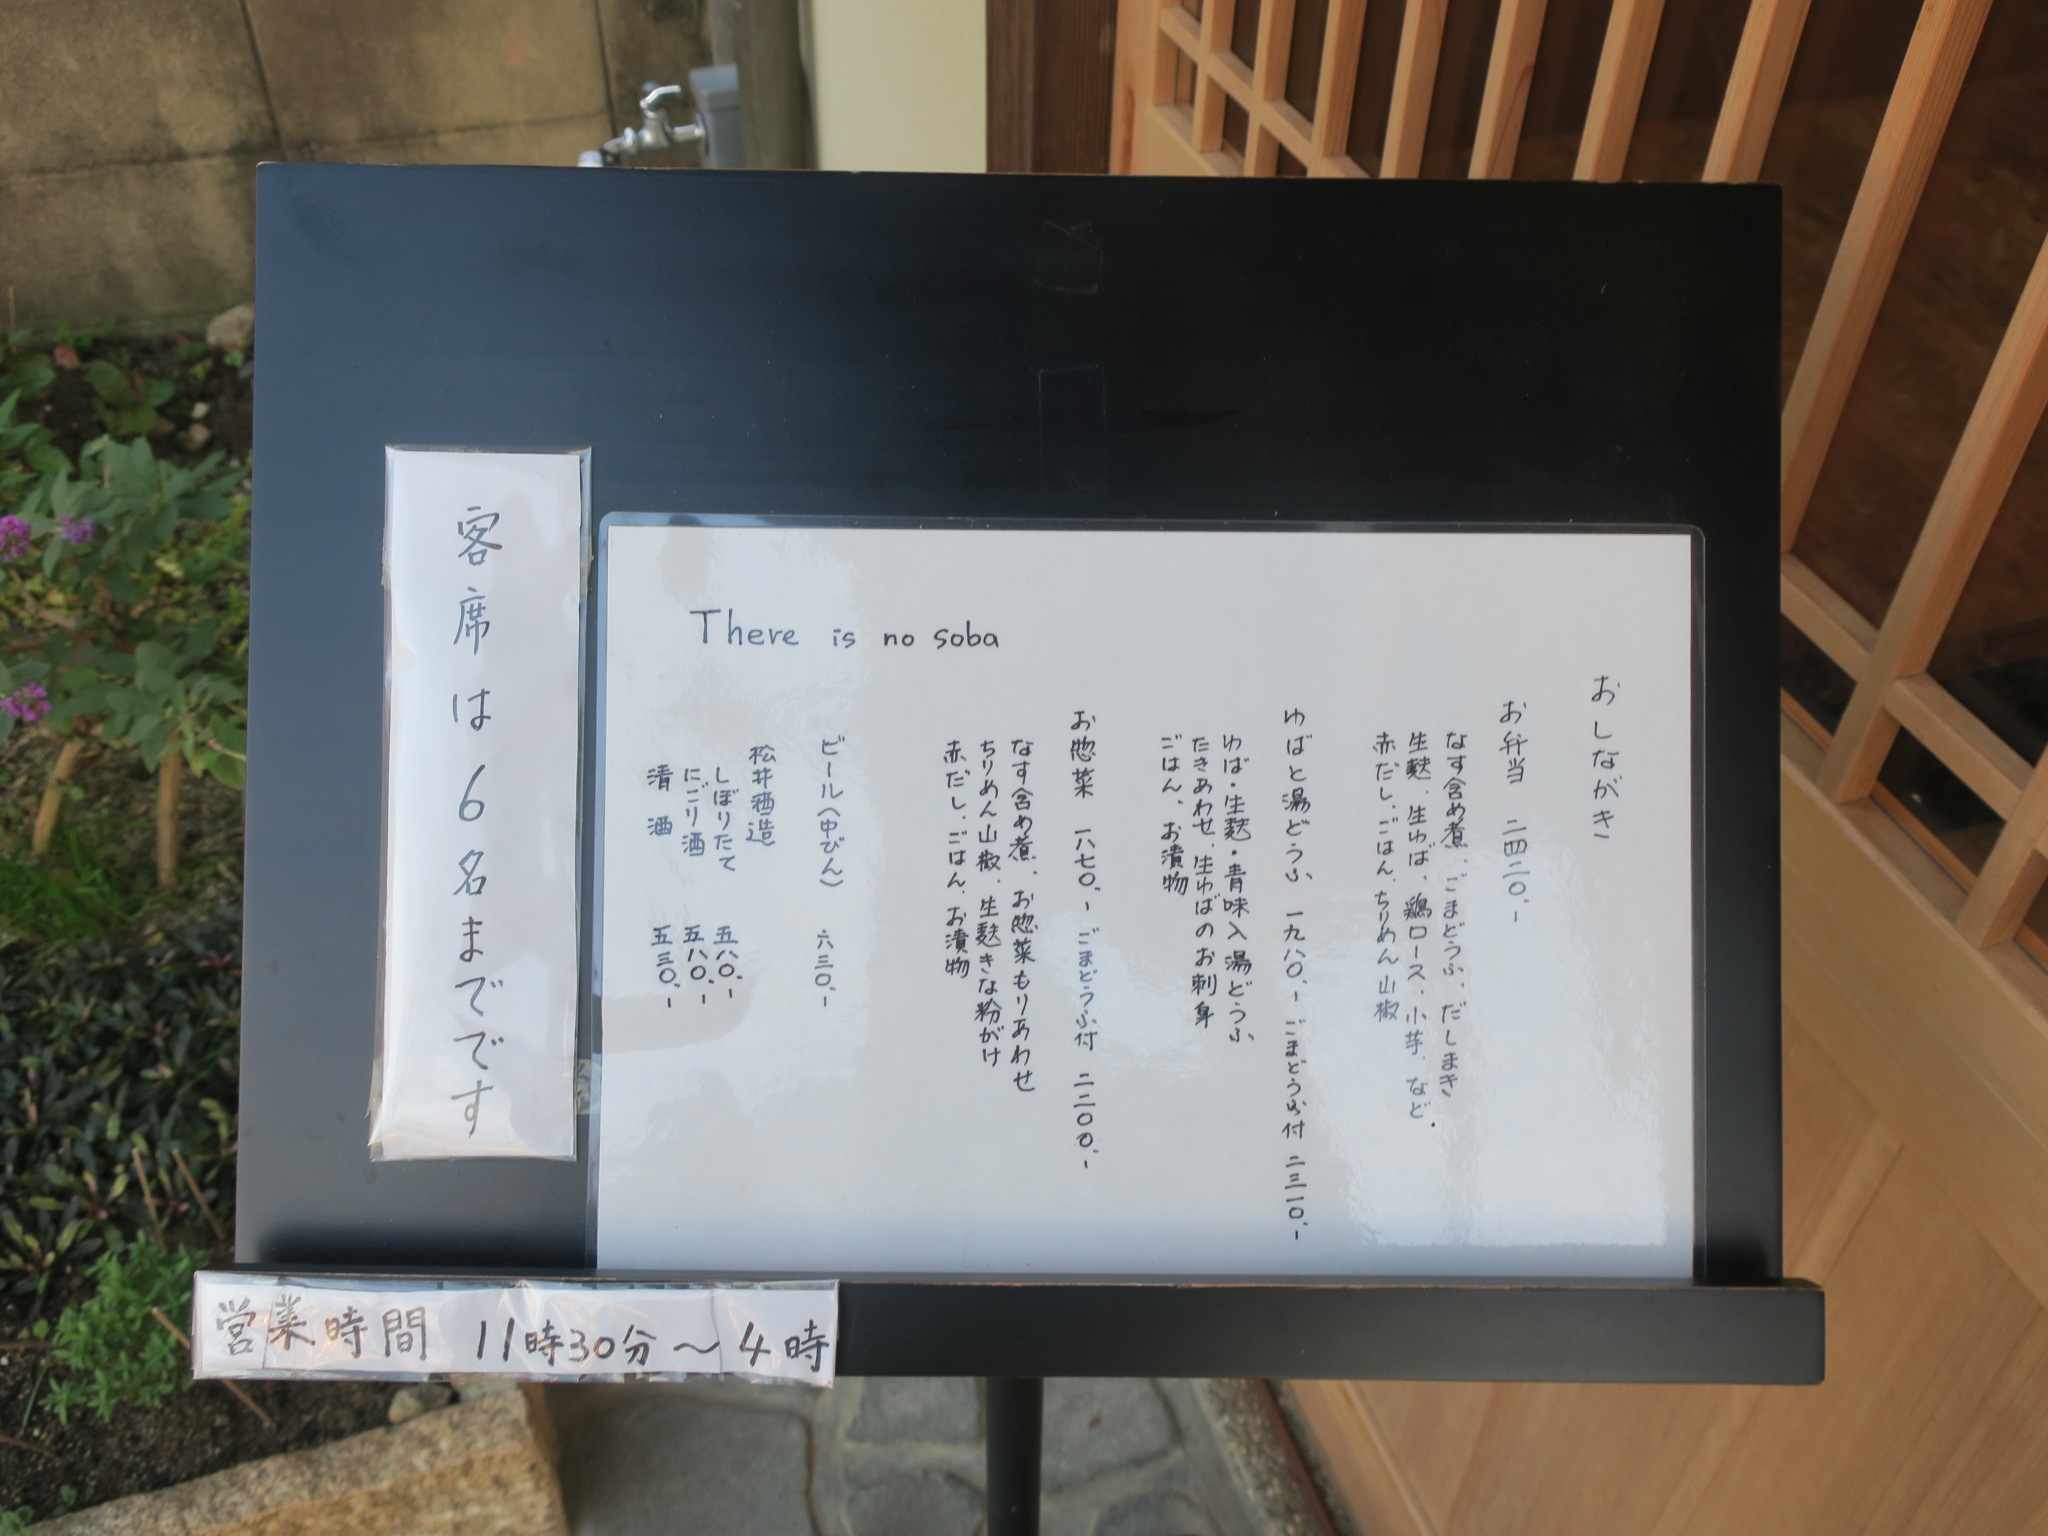 おしながき
お弁当 二四二〇.-
なす含め煮、ごまどうふ、だしまき
生麩、生ゆば、鶏ロース、小芋、など.
赤だし、ごはん、ちりめん山椒
ゆばと湯どうふ 一九八〇.- ごまどうふ付 二三一〇.-
ゆば・生麩・青味入湯どうふ
たきあわせ、生ゆばのお刺身
ごはん、お漬物
お惣菜 一八七〇.- ごまどうふ付 二二〇〇.-
なす含め煮、お惣菜もりあわせ
ちりめん山椒、生麩きな粉がけ
赤だし、ごはん、お漬物
There is no soba
ビール(中びん) 六三〇.-
松井酒造
しぼりたて 五八〇.-
にごり酒 五八〇.-
清酒 五三〇.-
客席は6名までです
営業時間 11時30分〜4時